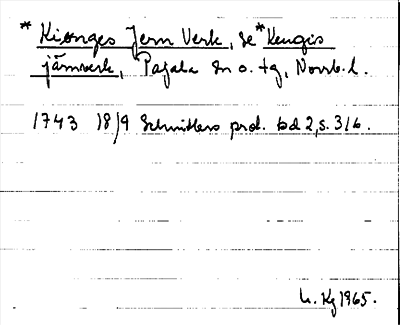 * Kionges Jern Verk, se * Kengis
järnverk, Pajala sn o. tg, Norrb. l.
1743 18/9 Schnitlers prot. bd 2, s. 316.
h. Kg 1965.